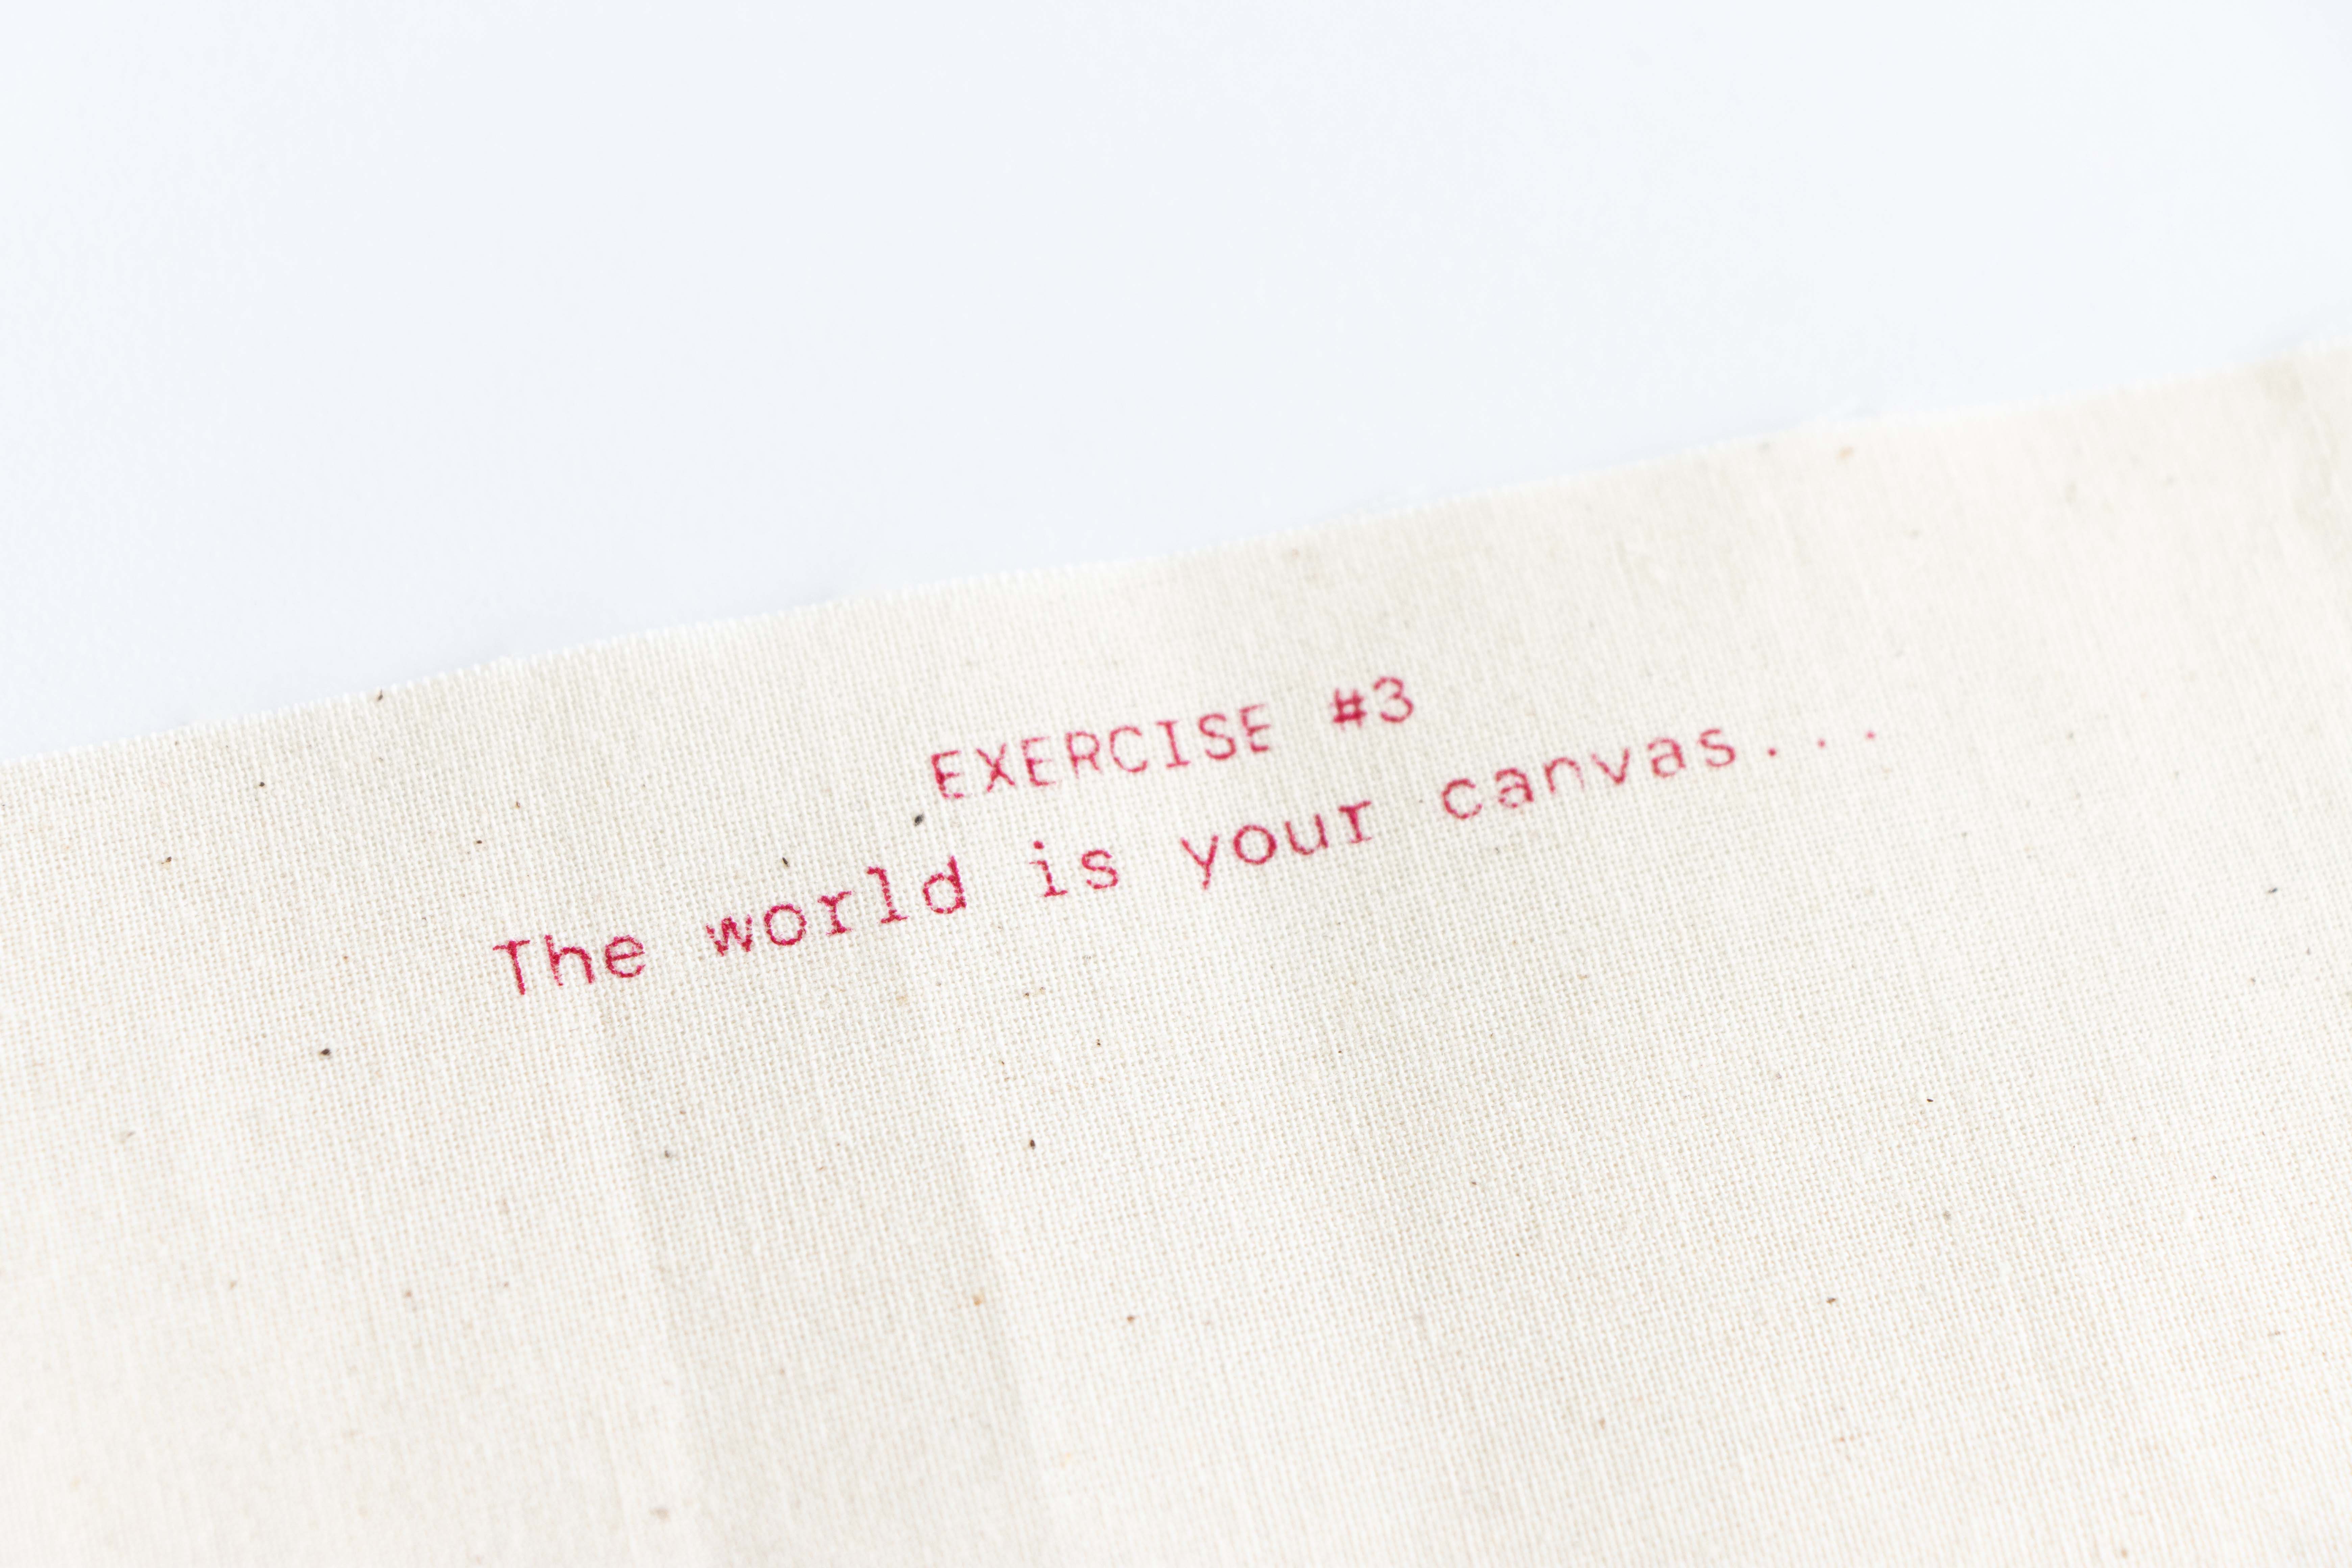 EXERCISE #3
The world is your canvas...